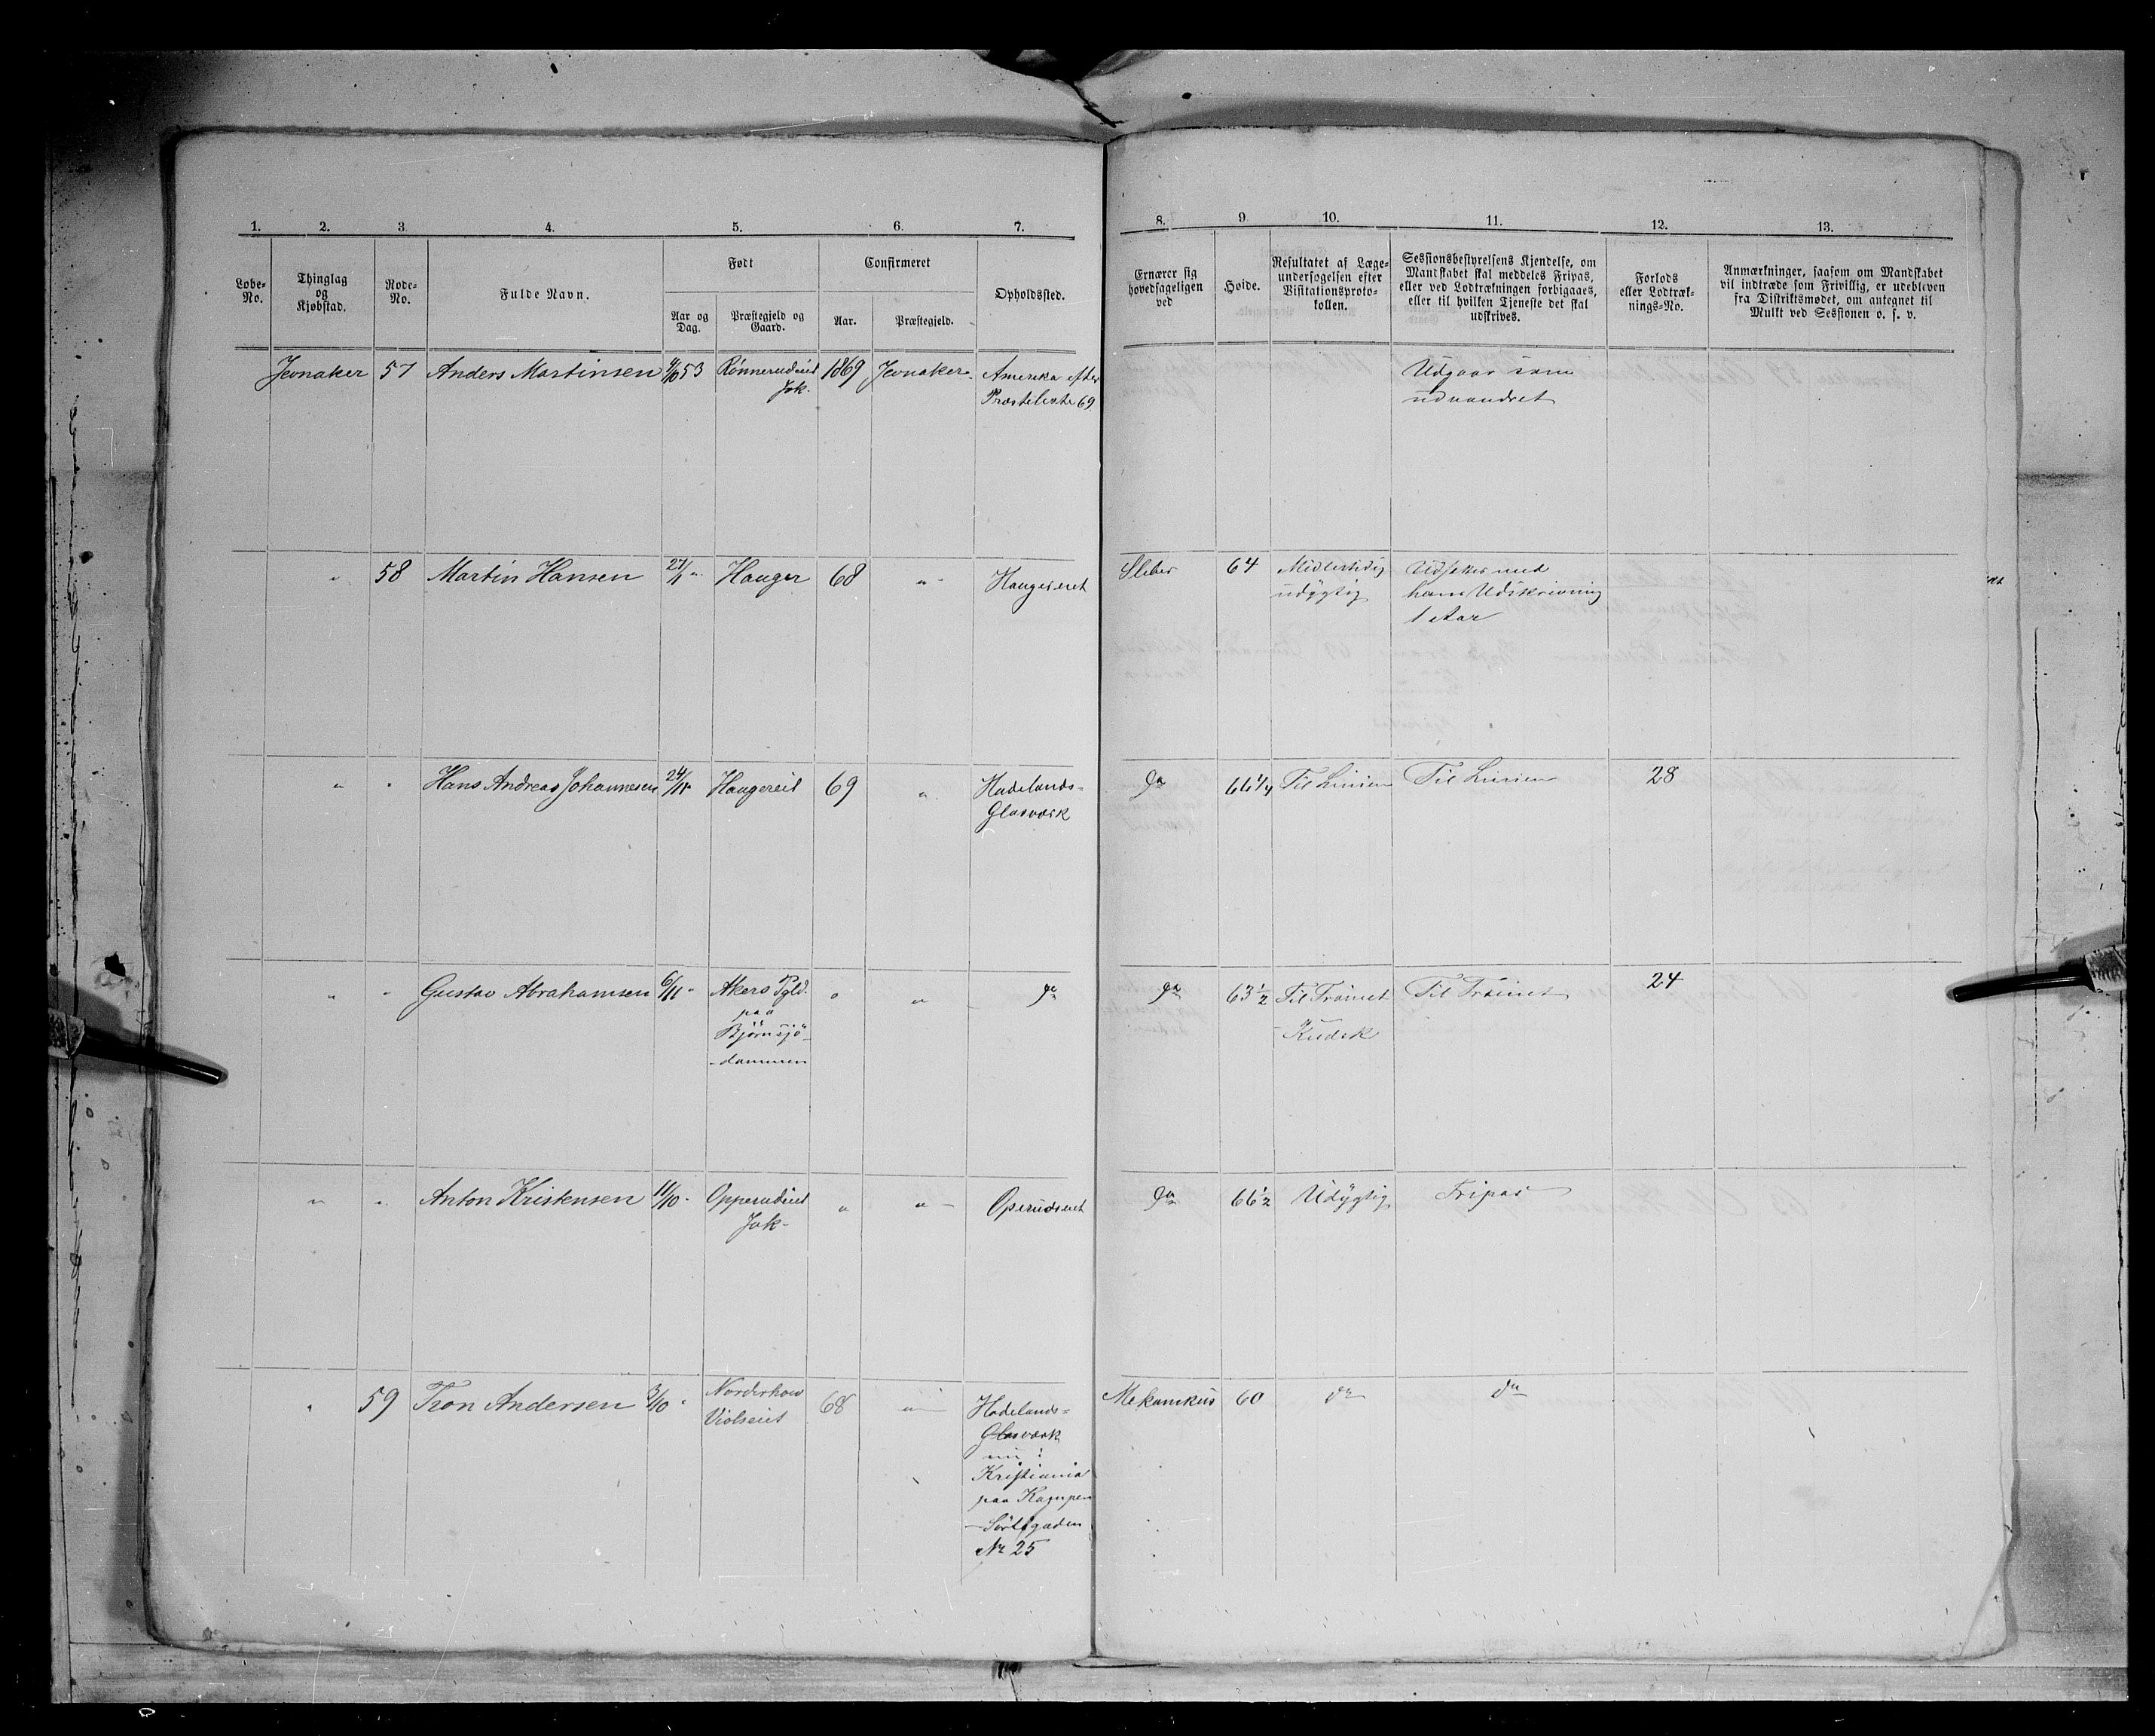 1. 2. 3. 4. 5. 6. 7.
Løbe-No. Thinglag og Kjøbstad. Rode-No. Fulde Navn. Født Confirmeret Opholdssted.
Aar og Dag. Præstegjeld og Gaard. Aar. Præstegjeld.
Jevnaker 57 Anders Martinsen 4/10 53 Rønnerudeiet 1869 Jevnaker Amerika efter
Jvk. Præsteliste 69
" 58 Martin Hansen " Hauger 68 " Haugereiet
" " Hans Andreas Johannesen 24/11 " Haugereiet 69 " Hadelands-
Glasværk
" " Gustav Abrahamsen 6/11 " Akers Pgld. " " da
paa
Bjørnsjö-
-dammen
" " Anton Kristensen 11/10 " Opperudeiet " " Operudseiet
Jvk-
" 59 Tron Andersen 3/10 " Norderhov 68 " Hadelands-
Violseiet Glasværk
nu i
Kristiania
paa Kampen
No 25
8. 9. 10. 11. 12. 13.
Ernærer sig hovedsageligen ved
Høide.
Resultatet af Læge-undersøgelsen efter Visitationsproto-kollen.
Sessionsbestyrelsens Kjendelse, om Mandskabet skal meddeles Fripas, eller ved Lodtrækningen forbigaaes, eller til hvilken Tjeneste det skal udskrives.
Forlods eller Lodtræk-nings-No.
Anmærkninger, saasom om Mandskabet vil indtræde som Frivillig, er udebleven fra Distriktsmødet, om antegnet til Mulkt ved Sessionen o. s. v.
Udgaar som
udvandret
Sliber 64 Midlertidig Udsættes med
udygtig hans Udskrivning
1 Aar
da 66 1/4 Til Linien Til Linien 28
da 63 1/2 Til Trainet Til Trainet 24
- Kudsk
da 66 1/2 Udygtig Fripas
Mekanikus 60 da da